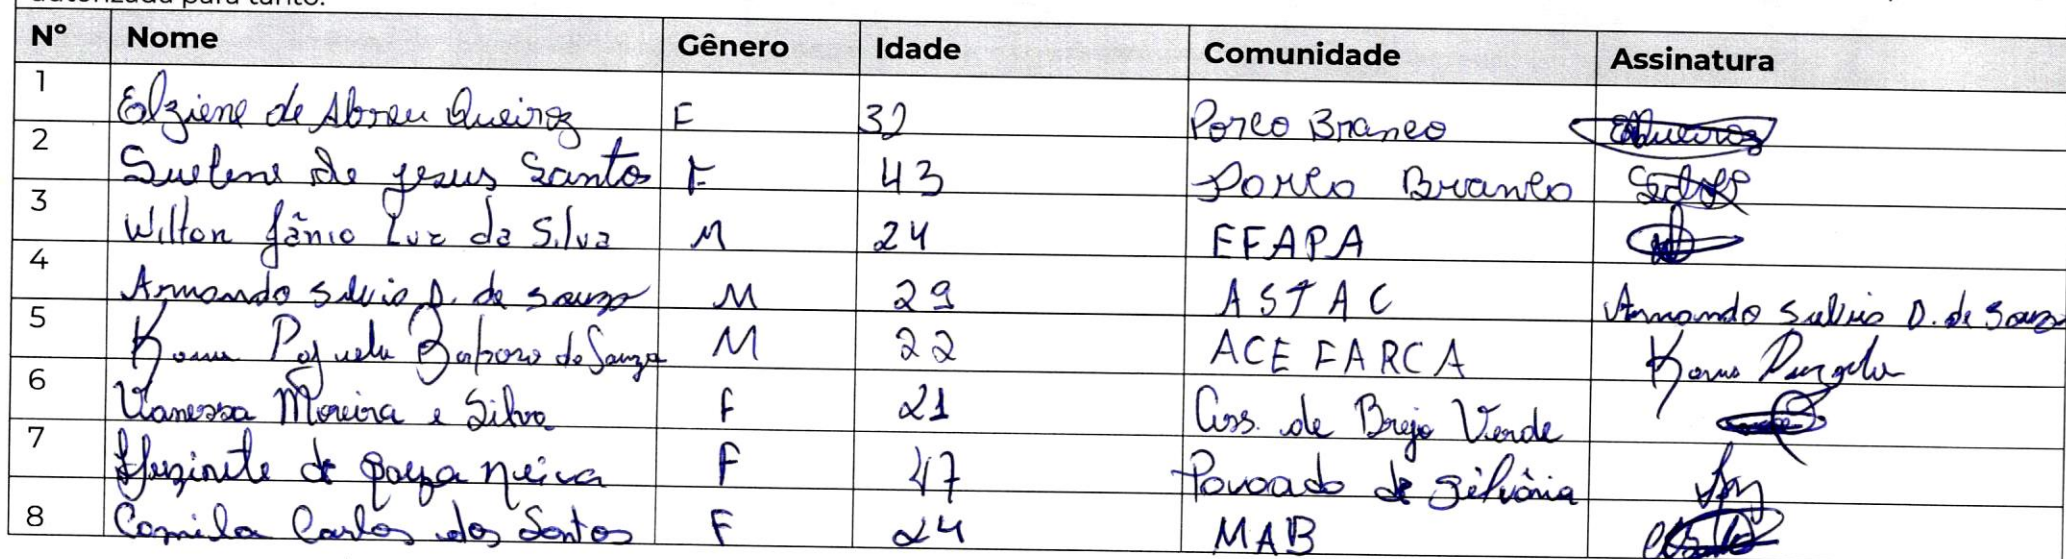 autorizada para tanto.
Nº Nome Gênero Idade Comunidade Assinatura
1 Elziene de Abreu Queiroz F 32 Porco Branco EAQueiroz
2 Suelene de Jesus Santos F 43 Porco Branco
3 Wilton Jânio Luz da Silva M 24 EFAPA
4 Armando Silvio D. de Souza M 29 ASTAC Armando Sulvio D. de Souza
5 de Souza M 22 ACE FARCA
6 Vanessa Moreira e Silva F 21 Ass. de Brejo Verde
7 de Neiva F 47 Povoado de
8 Camila Carlos dos Santos F 24 MAB